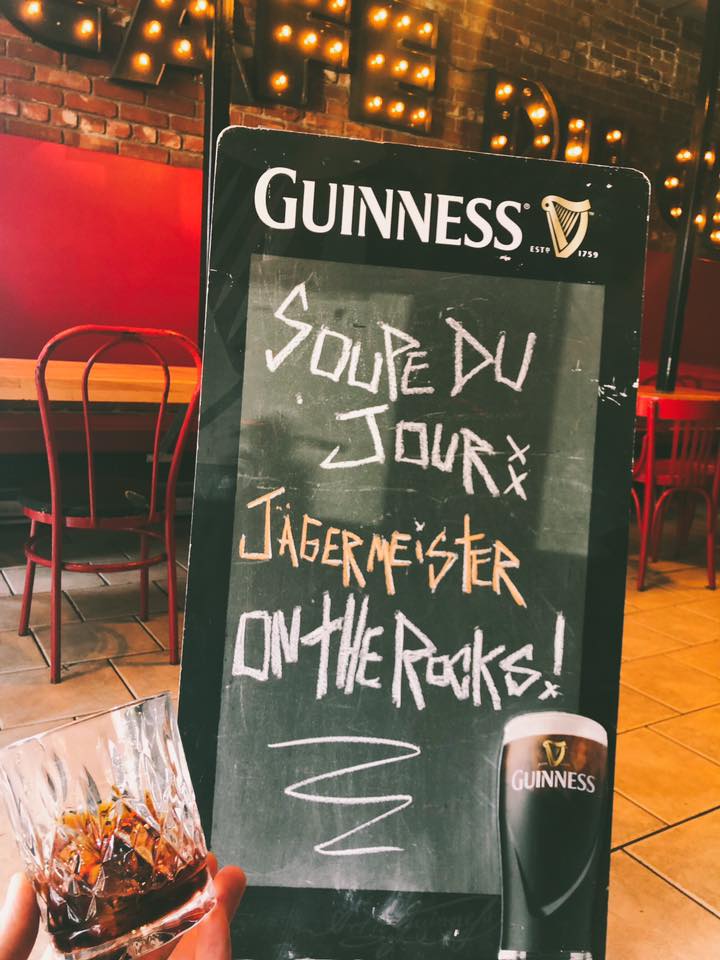 CAFE DU
GUINNESS®
ESTD 1759
SOUPE DU
JOUR:
JÄGERMEISTER
ON THE ROCKS!
GUINNESS